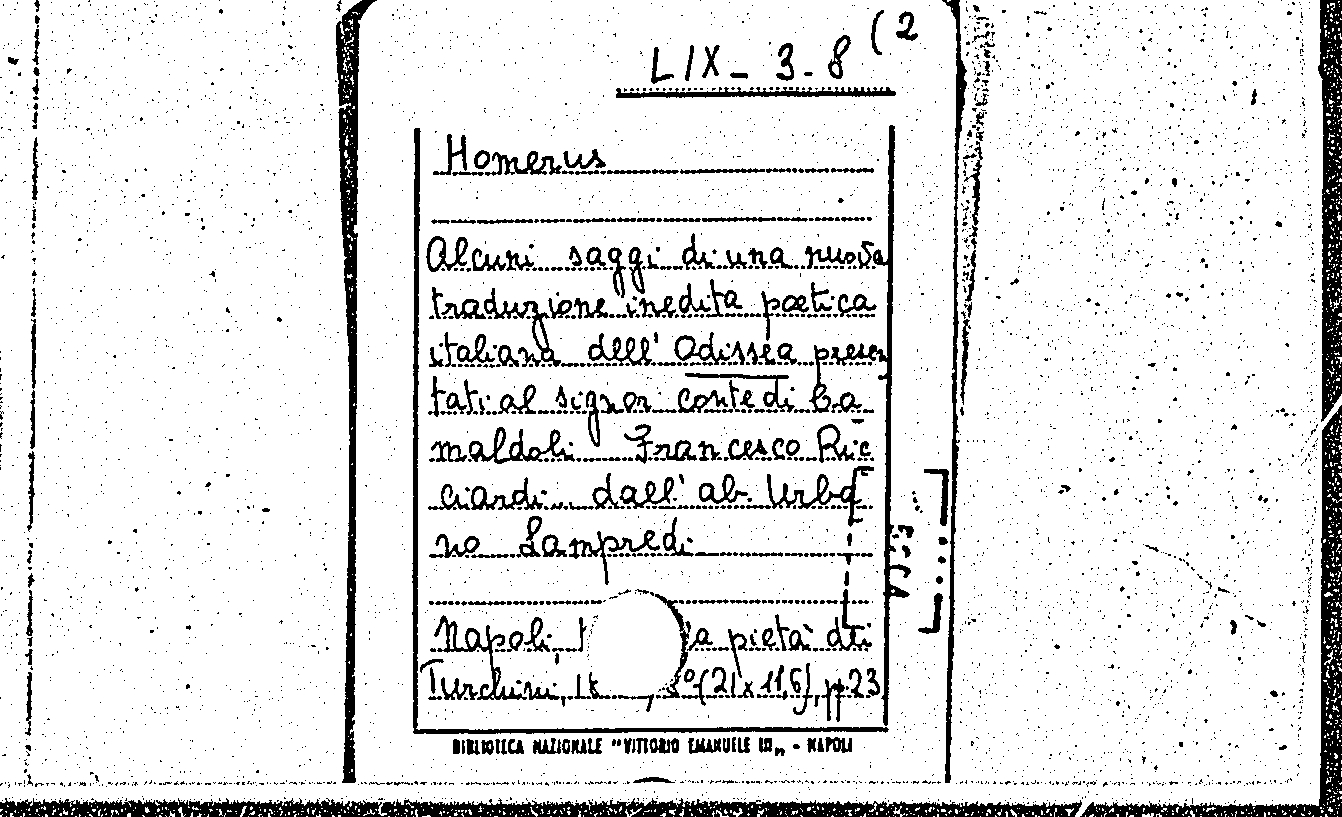 LIX - 3 - 8 (2
Homerus
Alcuni saggi di una nuova
traduzione inedita poetica
italiana dell' Odissea presen
tati al signor conte di Ca
maldoli Francesco Ric
ciardi... dall' ab. Urba
no Lampredi
Napoli, pietà dei
Turchini, 8º (21 x 11,6), pp 23
BIBLIOTECA NAZIONALE "VITTORIO EMANUELE III" - NAPOLI